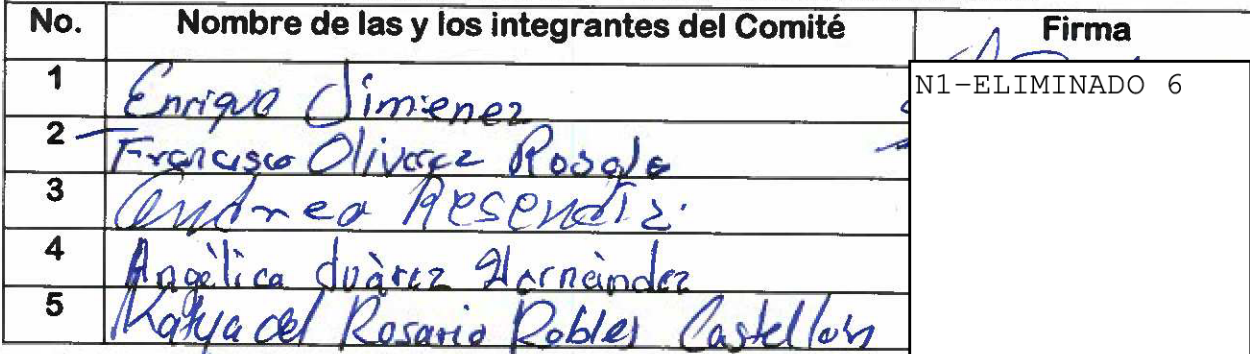 No. Nombre de las y los integrantes del Comité Firma
1 Enrique Jimenez N1-ELIMINADO 6
2 Francisco Olivarez Rosale
3 Andrea Resendiz.
4 Angèlica Juàrez Hernàndez
5 Katya del Rosario Robles Castellón